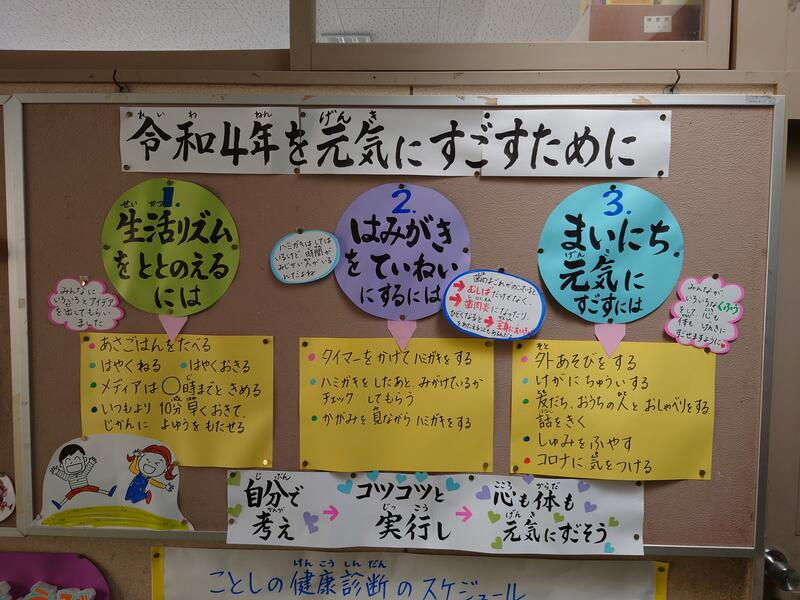 令和4年を元気にすごすために
1.
生活リズム
をととのえる
には
2.
はみがき
をていねい
にするには
3.
まいにち
元気に
すごすには
みんなに
いろいろとアイデア
を出してもらい
ました
ハミガキはしては
いるけど、時間が
みじかい人がいる
んだよね
歯のよごれがのこっていると、
→むしばだけでなく、
→歯肉炎になったり、
ひどくなると→全身にえいきょう
みんなが、
いろいろなくふう
をして 心も
体も げんきに
すごせますように
・あさごはんをたべる
・はやくねる ・はやくおきる
・メディアは◯時までときめる
・いつもより 10分 早くおきて、
じかんに よゆうをもたせる
・タイマーをかけてハミガキをする
・ハミガキをしたあと、みがけているか
チェック してもらう
・かがみを見ながらハミガキをする
・外あそびをする
・けがにちゅういする
・友だち、おうちの人とおしゃべりをする
話をきく
・しゅみをふやす
・コロナに気をつける
自分で
考え
→
コツコツと
実行し
→
心も体も
元気にすごそう
ことしの健康診断のスケジュール